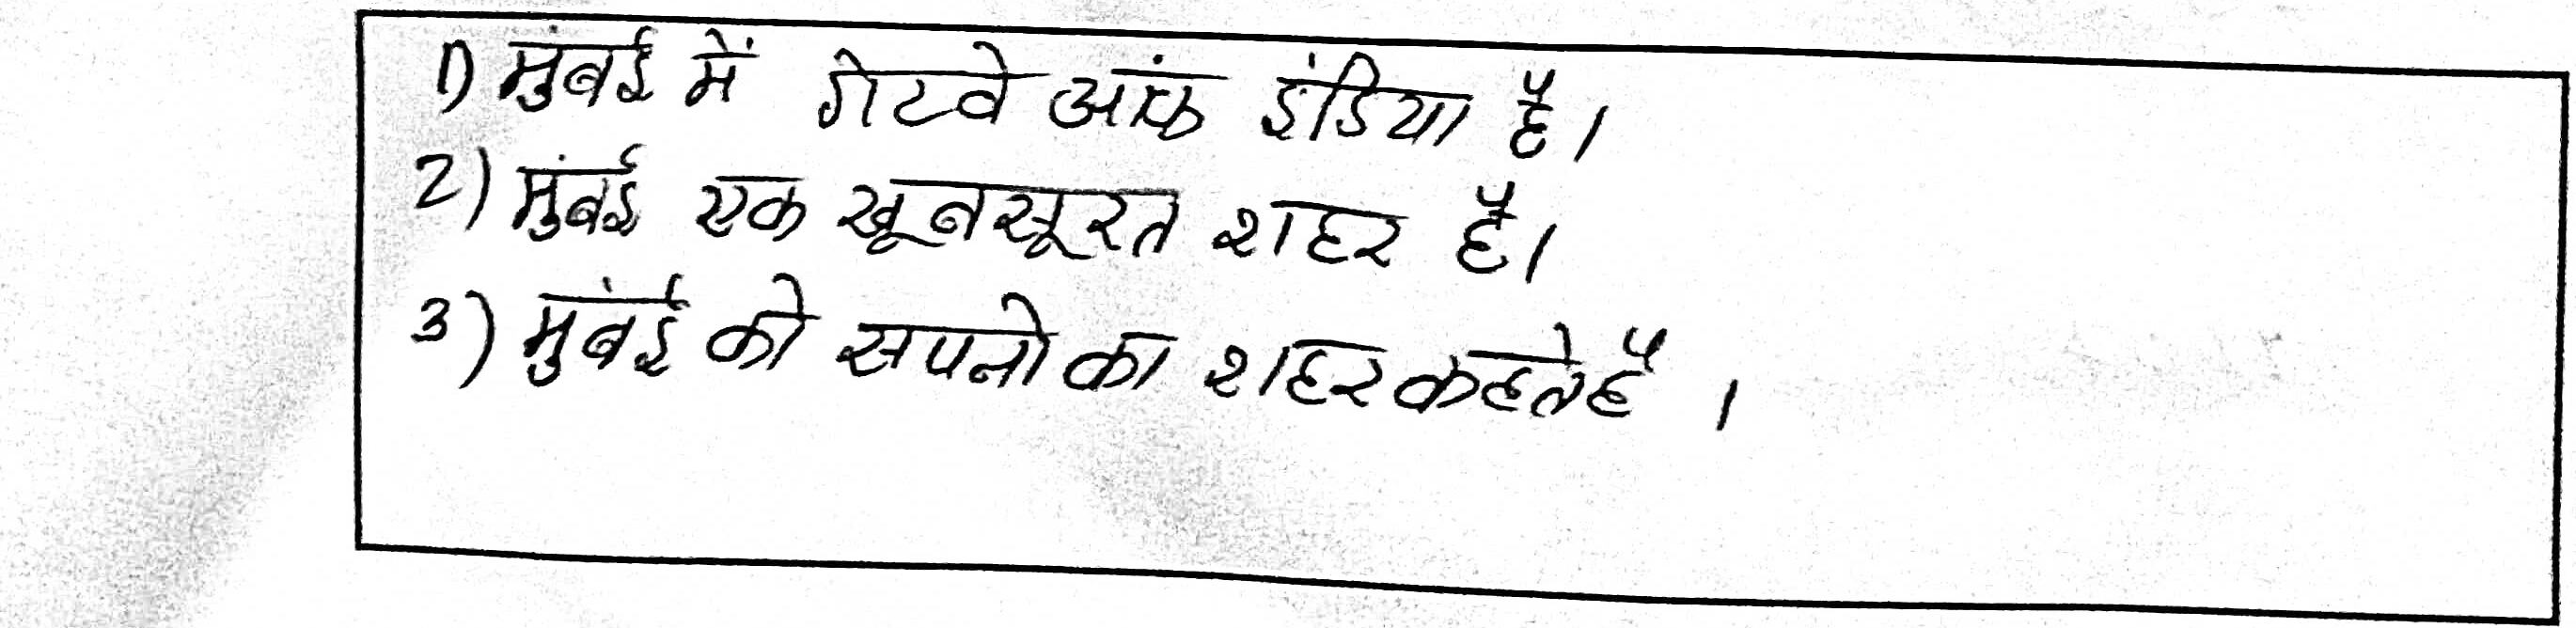 1) मुंबई में गेटवे आंफ इंडिया है।
2) मुंबई एक खूबसूरत शहर है।
3) मुबंई को सपनो का शहर कहते है ।